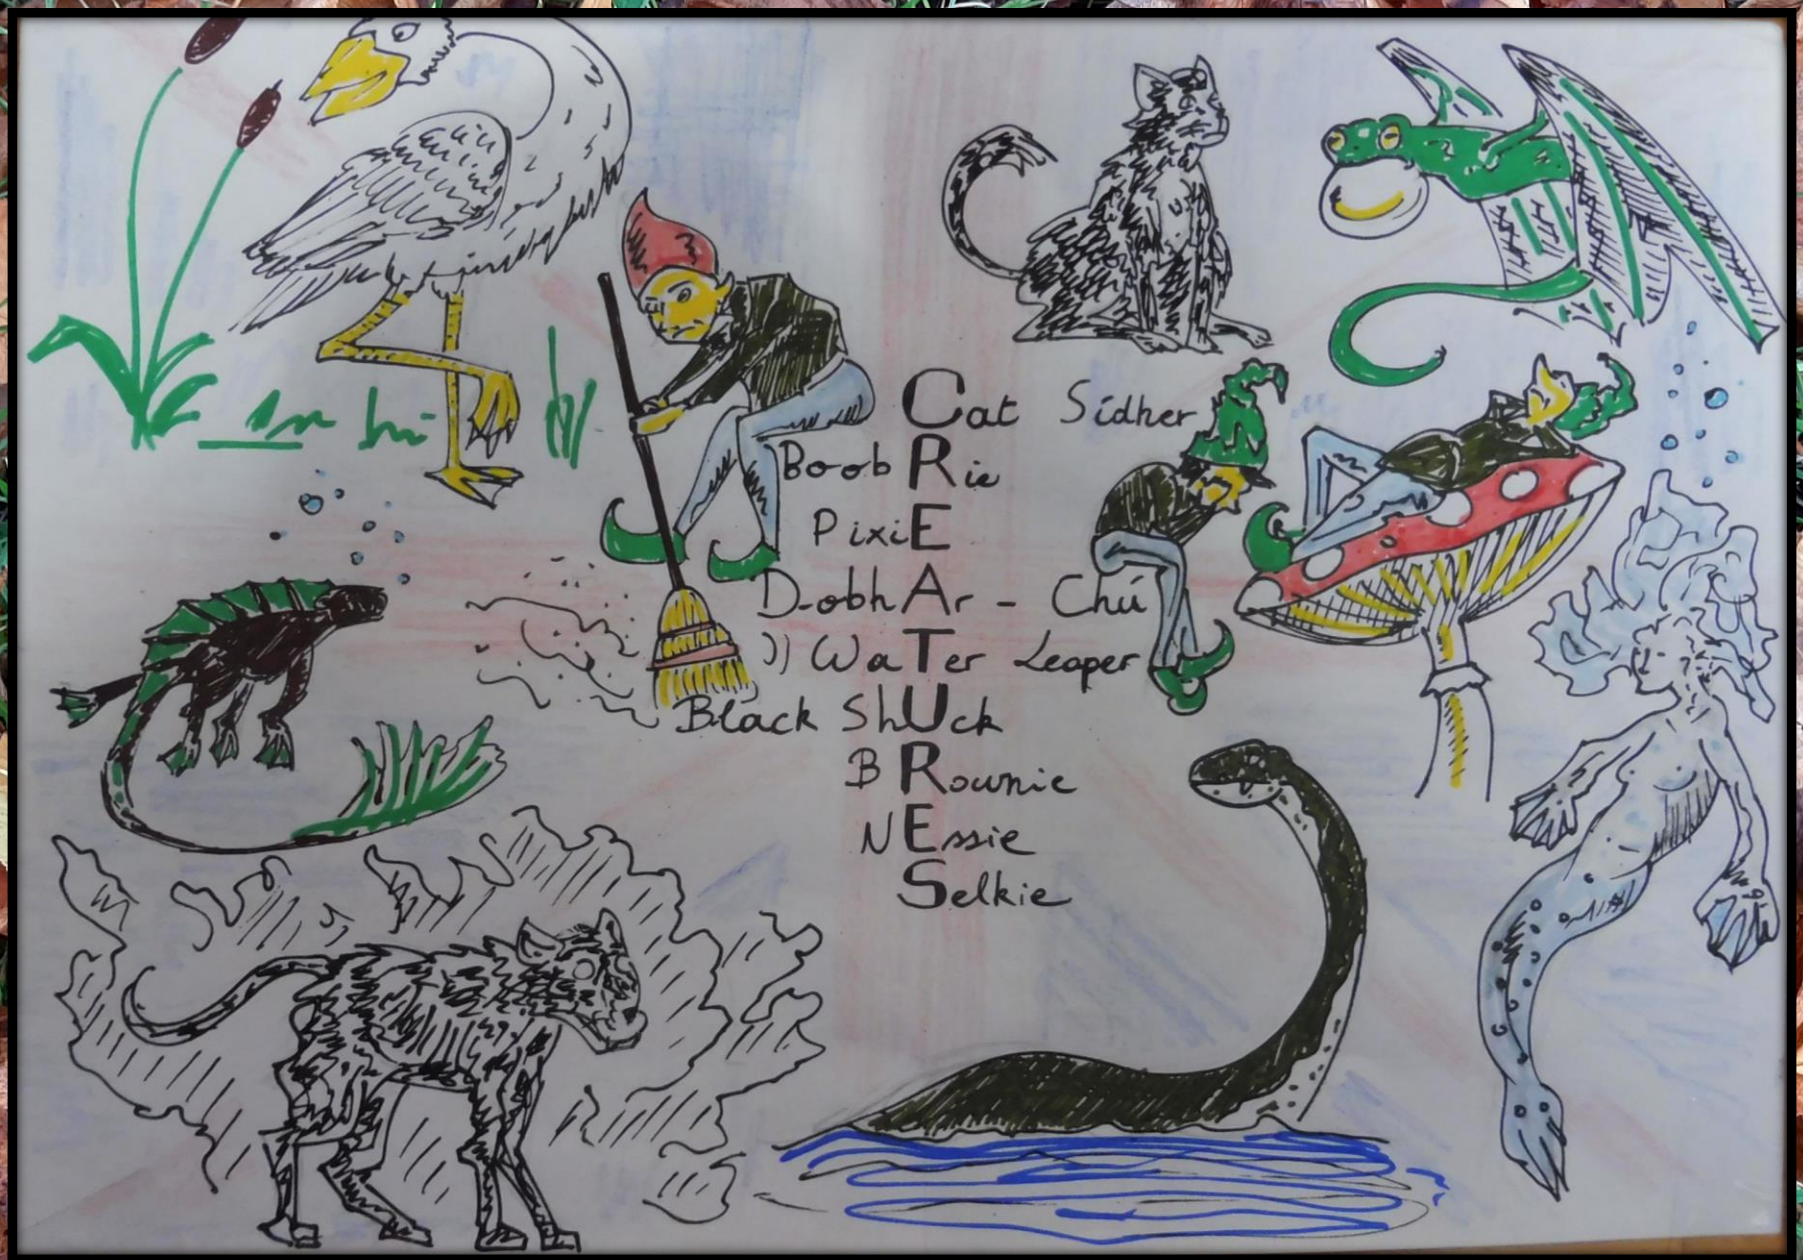 Cat Sidher
BoobRie
PixiE
DobhAr - Chú
WaTer Leaper
Black ShUck
BRownie
NEssie
Selkie